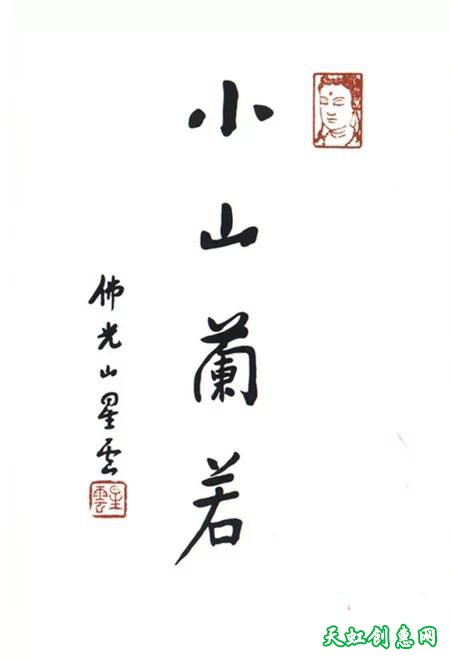 小山蘭若
佛光山星云
星雲
天虹创意网